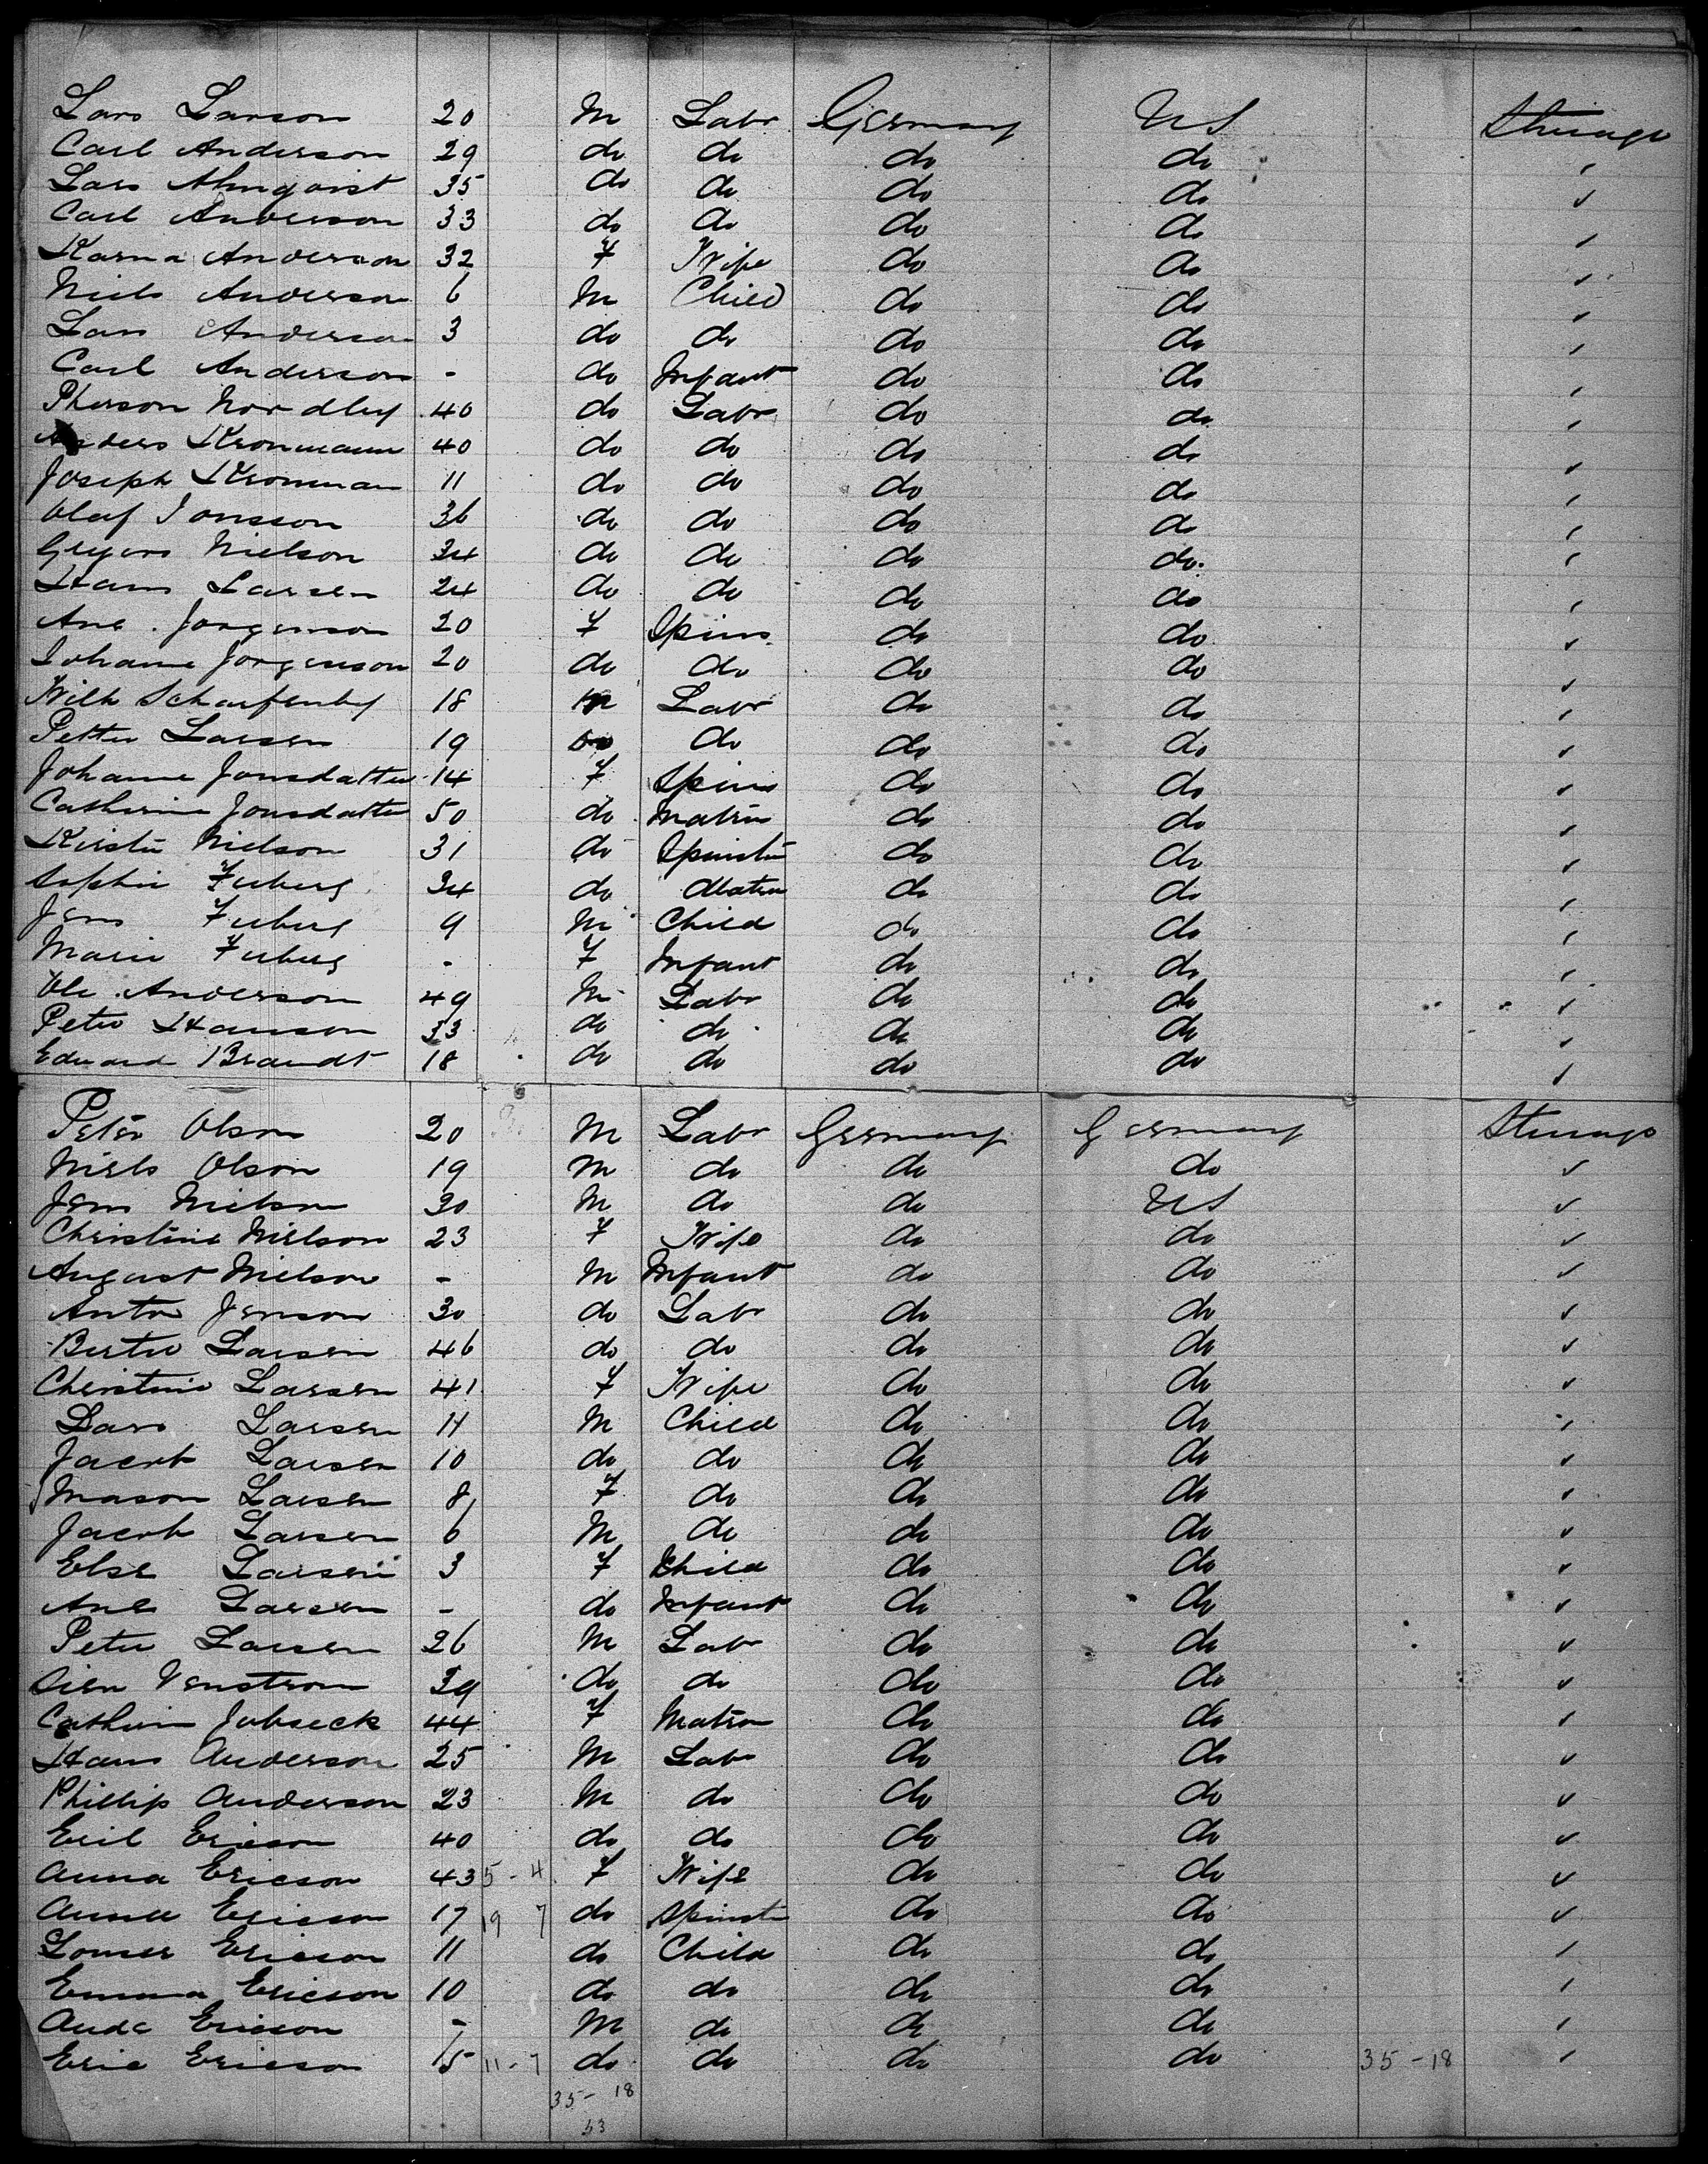 Lars Larson 20 M Labr Germany US Steerage
Carl Anderson 29 do do do do
Lars Almqvist 35 do do do do ✓
Carl Anderson 33 do do do do
Karna Anderson 32 F Wife do do
Niels Anderson 6 M Child do do
Lars Anderson 3 do do do do
Carl Anderson - do Infant do do
Pherson Nordley 40 do Labr do do
Anders Kronmann 40 do do do do
Joseph Kronman 11 do do do do
Olaf Jonsson 36 do do do do
Greyers Nielson 34 do do do do.
Hans Larsen 24 do do do do
Ane Jorgenson 20 F Spins do do
Johanne Jorgenson 20 do do do do
Wilh Scharfenby 18 M Labr do do
Petter Larsen 19 do do do do
Johanne Jonsdatter 14 F Spins do do
Catherine Jonsdatter 50 do Matrn do do
Kirstin Nielson 31 do Spinstr do do
Sophie 34 do Matrn do do
Jens 9 M Child do do
Marie - F Infant do do
Ole Anderson 49 M Labr do do
Peter Hanson 33 do do do do
Edward Brandt 18 do do do do
Peter Olson 20 M Labr Germany Germany Steerage
Niels Olson 19 M do do do ✓
Jens Nielson 30 M do do US ✓
Christine Nielson 23 F Wife do do ✓
August Nielson - M Infant do do ✓
Anton Jenson 30 do Labr do do ✓
Bertel Larsen 46 do do do do ✓
Christine Larsen 41 F Wife do do ✓
Lars Larsen 11 M Child do do
Jacob Larsen 10 do do do do ✓
Mason Larsen 8 F do do do ✓
Jacob Larsen 6 M do do do ✓
Else Larsen 3 F Child do do ✓
Ane Larsen - do Infant do do ✓
Peter Larsen 26 M Labr do do ✓
Venstrom 39 do do do do ✓
Cathrin Jobseck 44 F Matron do do
Hans Anderson 25 M Labr do do ✓
Phillip Anderson 23 M do do do ✓
Eril Ericson 40 do do do do ✓
Anna Ericson 43 5-4 F Wife do do ✓
Ericson 17 19 7 do Spinstr do do ✓
Louise Ericson 11 do Child do do
Emma Ericson 10 do do do do
Ericson - M do do do
Eric Ericson 15 11-7 do do do do 35-18
35-18
53